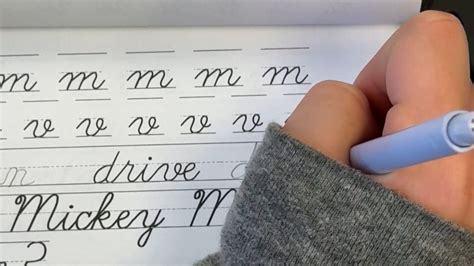 m m m m m
v v v v v
m drive
Mickey M